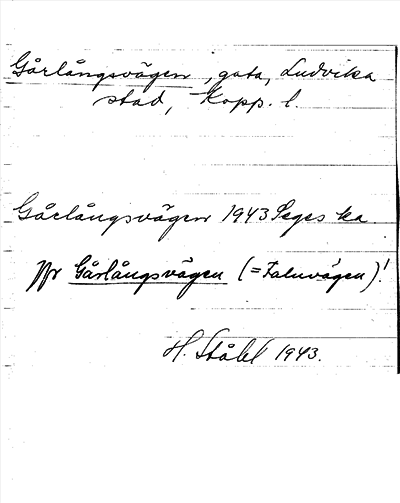 Gårlångsvägen, gata, Ludvika
stad, Kopp. l.
Gårlångsvägen 1943 Seges ha
Gårlångsvägen (=Faluvägen)!
H. Ståhl 1943.